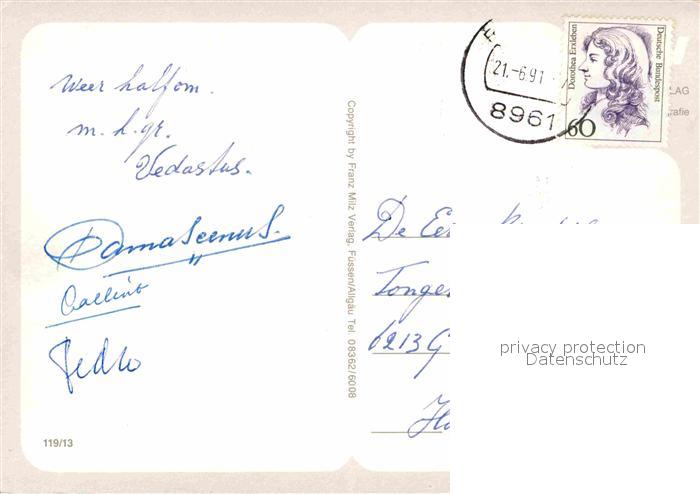 Weer halfom.
m. h. gr.
Vedastus.
Damascenus.
Pedro
119/13
Copyright by Franz Milz Verlag, Füssen/Allgäu Tel. 08362/6008
21.-6.91
8961
Dorothea Erxleben
Deutsche Bundespost
60
LAG
rafie
De
Tonges
6213 G
privacy protection
Datenschutz